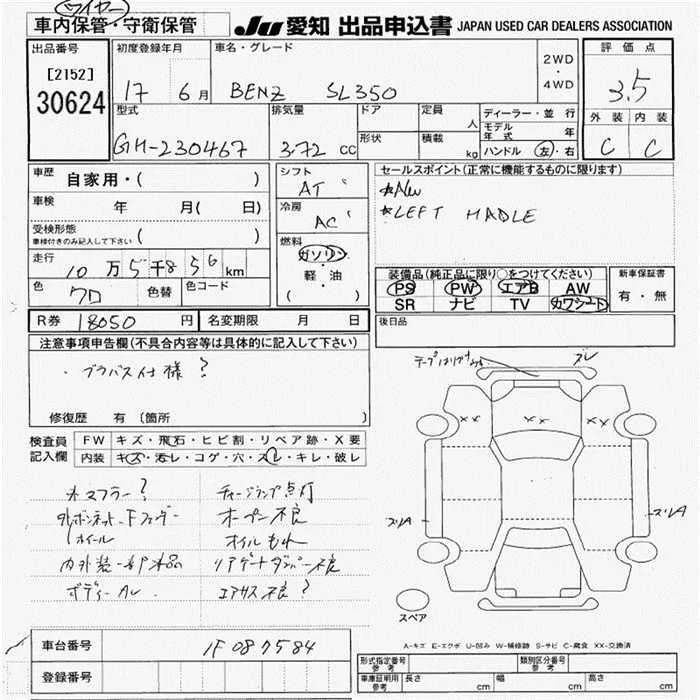 ワイヤー
車内保管・守衛保管
JU 愛知 出品申込書 JAPAN USED CAR DEALERS ASSOCIATION
出品番号 [2152] 30624
初度登録年月 17 6月
車名・グレード BENZ SL350
2WD・4WD
評価点 3.5
外装 内装
C C
型式 GH-230467
排気量 3.72 cc
ドア
形状
定員 人
積載 kg
ディーラー・並行
モデル年式 年
ハンドル 左・右
車歴 自家用・( )
車検 年 月( 日)
受検形態 ( )
車検付きのみ記入して下さい
走行 10万5千856km
色 クロ 色替 色コード
シフト AT
冷房 AC
燃料 ガソリン・軽・油
( )
セールスポイント(正常に機能するものに限ります)
LEFT HADLE
装備品(純正品に限り○をつけてください)
PS PW エアB AW
SR ナビ TV カワシート
新車保証書 有・無
R券 18050 円 名変期限 月 日
後日品
注意事項申告欄(不具合内容等は具体的に記入して下さい)
・ブラバス仕様?
修復歴 有 〔箇所 〕
検査員記入欄
FW キズ・飛石・ヒビ割・リペア跡・X要
内装 キズ・汚レ・コゲ・穴・スレ・キレ・破レ
マフラー? チャージランプ点灯
ボンネット・Fフェンダー オープン不良
ホイール オイルもれ
内外装一部 リアゲートダンパー不良
ボディー エアサス不良?
ズレ
ズリA
ズリA
XX XX XX
スペア
A-キズ E-エクボ U-凹み W-補修跡 S-サビ C-腐食 XX-交換済
車台番号 1F087584
登録番号
形式指定番号 参考
類別区分番号 参考
車庫証明用 参考 長さ cm 幅 cm 高さ cm